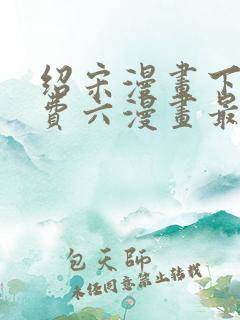 紹宋漫畫下
費六漫畫最
包天師
未經同意禁止轉載